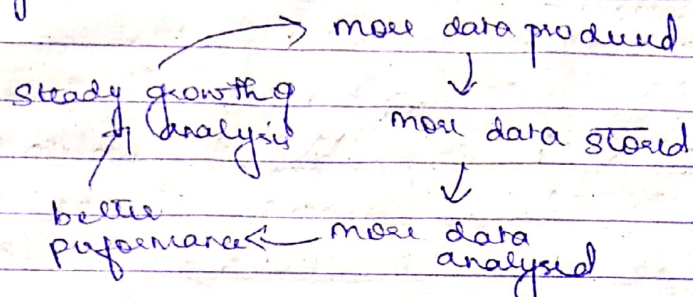 more data produced
steady growth of
analysis
more data stored
better
performance
more data
analysed